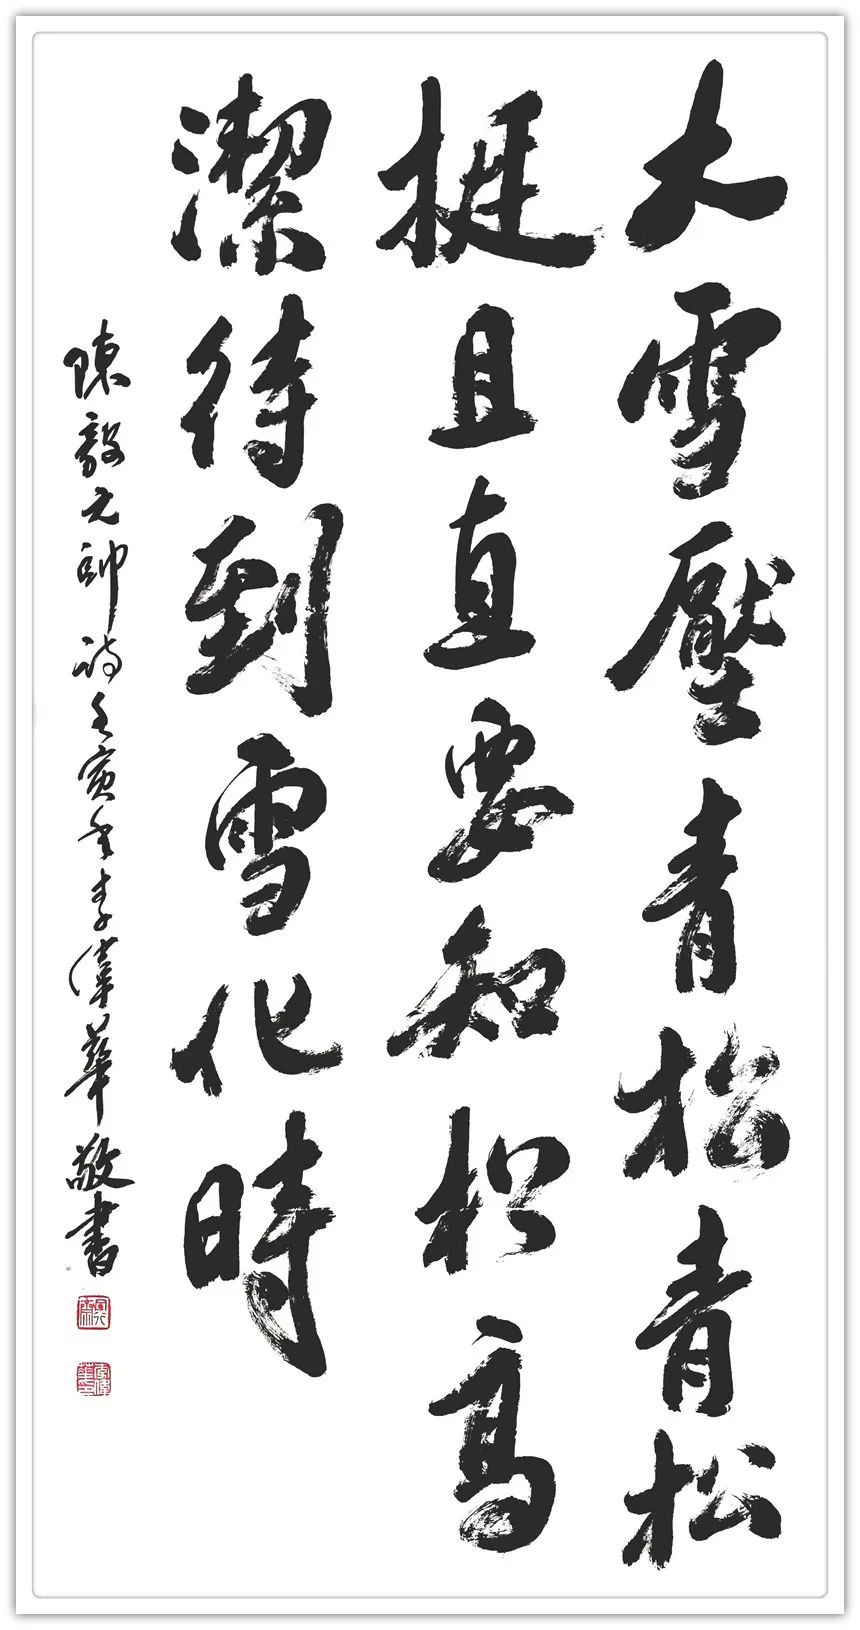 大雪壓青松青松
挺且直要知松高
潔待到雪化時
陳毅元帥詩壬寅年李偉華敬書